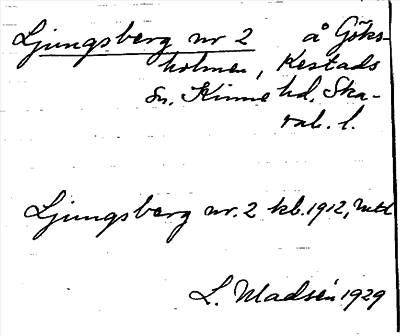 Ljungsberg nr 2 å Göks-
holmen, Kestads
sn, Kinne hd, Ska-
rab. l.
Ljungsberg nr. 2 kb. 1912, Mtd
L. Madsén 1929